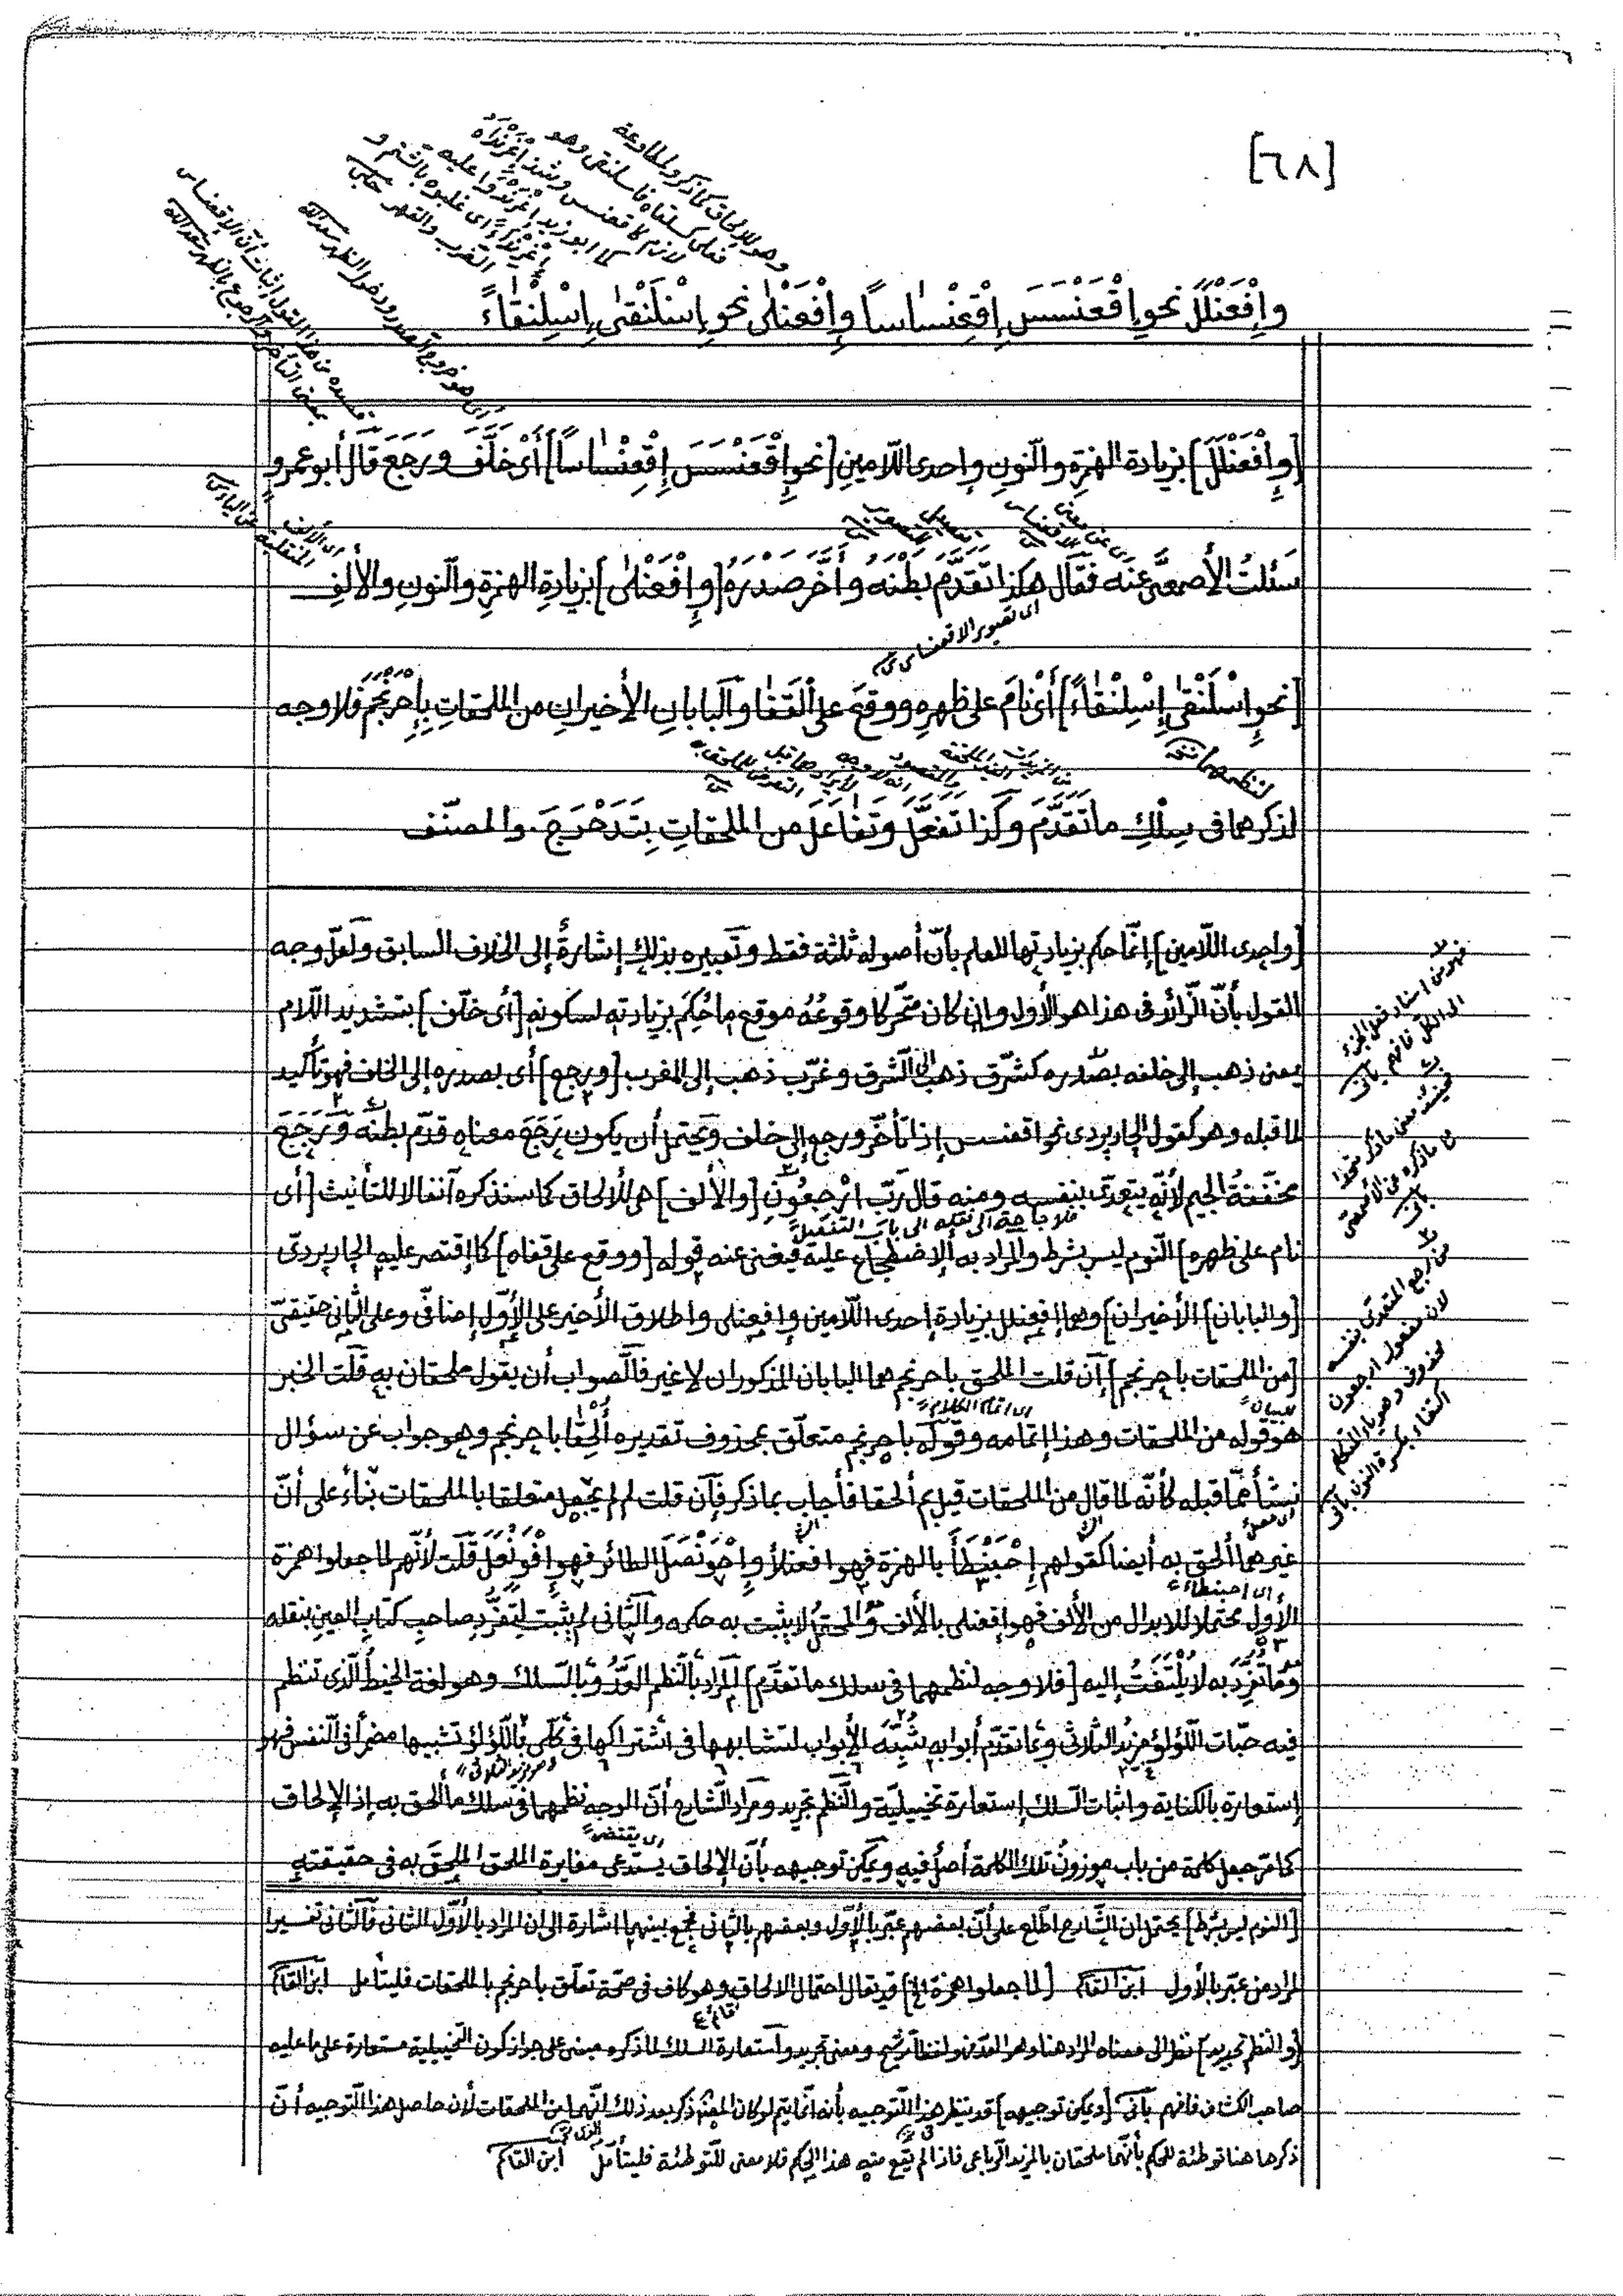 [٦٨]
وهو للإلحاق كما ذكر وللمطاوعة
فعلى كسلقاه فاسلنقى وهو
لازم كاقعنسس وشذ إغرنداه
وإِفْعَنْلَلَ نحو إِقْعَنْسَسَ إِقْعِنْسٰاساً وإِفْعَنْلٰى نحو إِسْلَنْقٰى إِسْلِنْقٰاءً
[وإِفْعَنْلَلَ] بزيادة الهمزة والنّون وإحدى اللّامين [نحو إِقْعَنْسَسَ إِقْعِنْسٰاساً] أَىْ خَلَّفَ ورَجَعَ قَالَ أبو عمرو
سَئلتُ الأصمعىَّ عنه فقَال هٰكذا تَقَدَّمَ بطْنَهُ وأَخَّرَ صَدْرَهُ [وإِفْعَنْلٰى] بزيادةِ الهمزةِ والنّونِ والألِفِ
اى تصوير الاقعنساس
[نحو إِسْلَنْقٰى إِسْلِنْقٰاءً] أَىْ نامَ على ظهرِه ووقعَ على الْقَفٰا والْبابانِ الأخيرانِ من الملحقاتِ بِإِحْرَنْجَمَ فلا وجه
لنظمهما فى سِلْكِ ما تَقَدَّمَ وكَذا تَفَعَّلَ وتَفٰاعَلَ من الملحقاتِ بِتَدَحْرَجَ. والمصنّف
[واحدى اللّامين] إنّما حكم بزيادتها للعلم بأنّ أصوله ثلثة فقط وتعبيره بذلك إشارةٌ إلى الخلاف السابق ولعلّ وجه
القول بأنّ الزّائد فى هذا هو الأول وإن كان متحّركا وقوعُهُ موقع ما حُكِمَ بزيادته لسكونه [أى خلّف] بتشديد اللّام
يعنى ذهب إلى خلفه بصدره كشرّق ذهب إلى الشّرق وغرّب ذهب إلى المغرب [ورجع] أى بصدره إلى الخلف فهو تأكيد
لما قبله وهو كقول الجاربردى نحو اقعنسس إذا تأخّر ورجع إلى خلف ويحتمل أن يكون رَجَعَ معناه قدّم بطنه ورَجَعَ
مخفّفة الجيم لأنّه يتعدّى بنفسه ومنه قال رَبِّ ارْجِعُونِ [والألف] هى للالحاق كما سنذكره آنفا لا للتأنيث [أى
فلا حاجة الى نقله الى باب التفعيل
نام على ظهره] النّوم ليس بشرط والمراد به الاضطجاع عليه فيغنى عنه قوله [ووقع على قفاه] كما إقتصر عليه الجاربردىّ
[والبابان] الأخيران] وهما إفعنلل بزيادة إحدى اللّامين وإفعنلى وإطلاق الأخير على الأوّل إضافىّ وعلى الثّانى حقيقىّ
[من الملحقات باحرنجم] إن قلت الملحق باحرنجم هما البابان المذكوران لا غير فالصواب أن يقول ملحقان به قلت الخبر
هو قوله من الملحقات وهذا إتمامه وقوله باحرنجم متعلّق بمحذوف تقديره أُلْحِقٰا باحرنجم وهو جواب عن سؤال
نشأ عمّا قبله كأنّه لما قال من الملحقات قيل بم ألحقا فأجاب بما ذكر فإن قلت لم لم يجعل متعلقا بالملحقات بناءً على أنّ
غيرهما ألحق به أيضا كقولهم إِحْبَنْطَأَ بالهمزة فهو افعنلأ وإِحْوَنْصَلَ الطائر فهو إِفْوَنْعَلَ قلت لأنّهم لما جعلوا همزة
اى احبنطاء
الأول محتملا للابدال من الألف فهو إفعنلى بالألف والمحتمل لا يثبت به حكمه والثّانى لم يثبت لِتَفَرُّدِ صاحب كتاب العين بنقله
وما تَفَرَّدَ به لا يُلْتَفَتُ إليه [فلا وجه لنظمهما فى سلك ما تقدّم] المراد بالنّظم العدّ وبالسّلك وهو لغة الخيط الّذى تنظم
فيه حبّات اللّؤلؤ مزيد الثّلاثى وبما تقدّم أبوابه شُبّه الأبواب لتشابهها فى اشتراكها فى كلّى باللّؤلؤ تشبيها مضمرا فى النّفس فهو
إستعارة بالكناية واثبات السلك إستعارة تخييليّة والنّظم تجريد ومراد الشّارح أنّ الوجه نظمهما فى سلك ما ألحق به إذ الإلحاق
كما مرّ جعل كلمة من باب موزون تلك الكلمة أصل فيه ويمكن توجيهه بأنّ الإلحاق يستدعى مغايرة الملحق الملحقَ به فى حقيقته
[النوم ليس بشرط] يحتمل ان الشّارح اطّلع على أنّ بعضهم عبّر بالأوّل وبعضهم بالثّانى فجمع بينهما اشارة الى ان المراد بالأوّل الثّانى فالثّانى تفسيرا
لمراد من عبّر بالأول ابن القاسم [لما جعلوا همزة الخ] قد يقال احتمال الالحاق وهو كاف فى صحّة تعلّق باحرنجم بالملحقات فليتأمل ابن القاسم
[والنظم تجريد] نظرا الى معناه المراد هنا وهو العدّ فهو لفظا ترشيح ومعنى تجريد واستعارة السلك لما ذكره مبنى على جواز كون التخييلية مستعارة على ما عليه
صاحب الكشاف فافهم [ويمكن توجيهه] قد ينظر هذا التّوجيه بأنه انّما يتم لو كان المصنّف ذكر بعد ذلك انّهما من الملحقات لأن حاصل هذا التّوجيه أنّ
ذكرهما هنا توطئة للحكم بأنّهما ملحقان بالمزيد الرّباعى فاذا لم يقع منه هذا الحكم فلا معنى للتّوطئة فليتأمل ابن القاسم
فهو من اسناد فعل الجزء
الى الكل فافهم
من رجع المتعدّى بنفسه
لان مفعول ارجعون
محذوف وهو ياء المتكلم
اكتفاء بكسرة النون